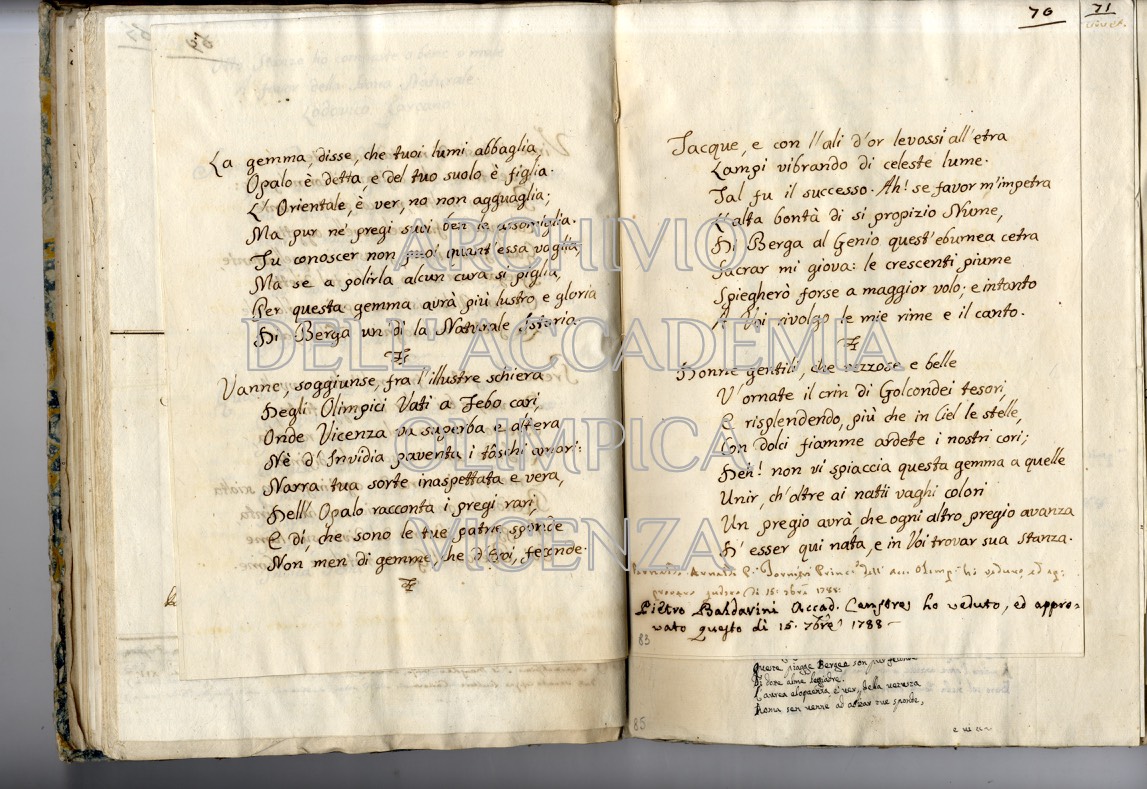 La gemma, disse, che tuoi lumi abbaglia
Opalo è detta, e del tuo suolo è figlia.
L'Orientale, è ver, no non agguaglia;
Ma pur ne' pregi suoi ben le assomiglia.
Tu conoscer non puoi quant'essa vaglia,
Ma se a polirla alcun cura si piglia,
Per questa gemma avrà più lustro, e gloria
Di Berga un dì la Naturale Istoria.
Vanne, soggiunse, fra l'illustre schiera
Degli Olimpici Vati a Febo cari,
Onde Vicenza va superba e altera
Nè d'Invidia paventa i tôschi amari:
Narra tua sorte inaspettata e vera,
Dell'Opalo racconta i pregi rari,
E dì, che sono le tue patrie sponde
Non men di gemme, che d'Eroi, feconde.
70
71
Tacque, e con l'ali d'or levossi all'etra
Lampi vibrando di celeste lume.
Tal fu il successo. Ah! se favor m'impetra
L'alta bontà di si propizio Nume,
Di Berga al Genio quest'eburnea cetra
Sacrar mi giova: le crescenti piume
Spiegherò forse a maggior volo; e intanto
A Voi rivolgo le mie rime e il canto.
Donne gentili, che vezzose e belle
V'ornate il crin di Golcondei tesori,
E risplendendo, più che in Ciel le stelle,
Con dolci fiamme ardete i nostri cori;
Deh! non vi spiaccia questa gemma a quelle
Unir, ch'oltre ai natii vaghi colori
Un pregio avrà, che ogni altro pregio avanza
D'esser qui nata, e in Voi trovar sua stanza.
Arnaldo Arnaldi Tornieri Princ.e dell'Acc. Olimp. ho veduto, ed ap:
provato questo dì 15. 7bre 1788.
Pietro Baldavini Accad. Censore ho veduto, ed appro-
vato questo dì 15. 7bre 1788
83
Queste piagge Bergee son pur
Di dare alme leggiadre.
Laurea eloquenza, è ver, bella vezzosa
Roma sen venne ad alzar tue sponde,
85
ARCHIVIO
DELL'ACCADEMIA
OLIMPICA
VICENZA